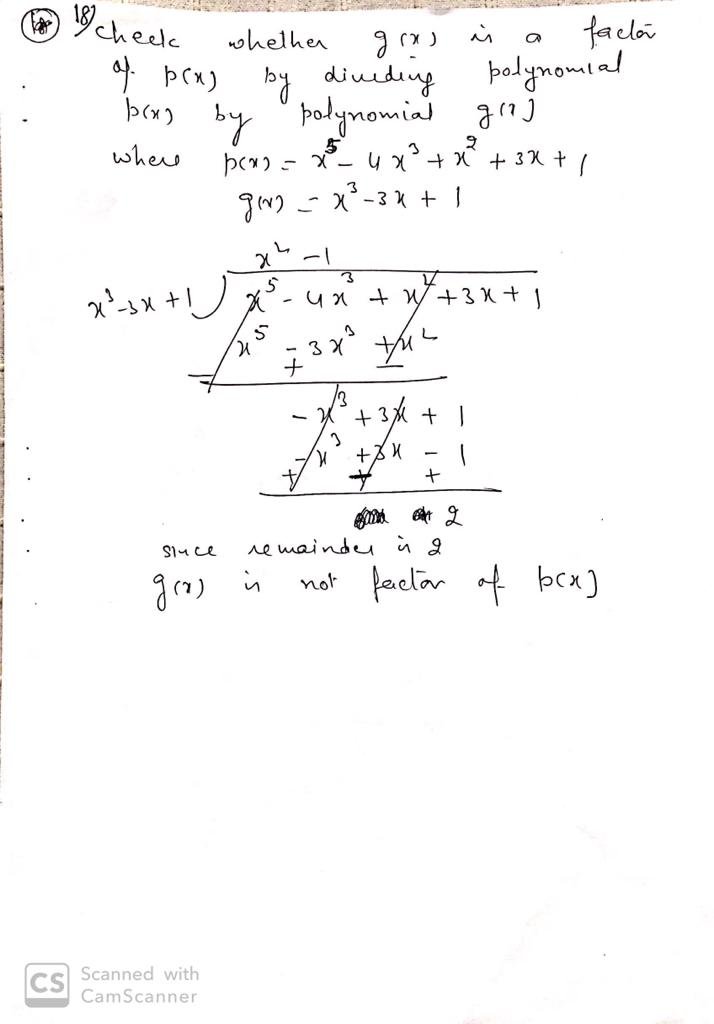 18) Check whether g(x) is a factor
of p(x) by dividing polynomial
p(x) by polynomial g(x)
where p(x) = x⁵ - 4x³ + x² + 3x + 1
g(x) = x³ - 3x + 1
x² - 1
x³ - 3x + 1 ) x⁵ - 4x³ + x² + 3x + 1
x⁵ - 3x³ + x²
- + -
- x³ + 3x + 1
- x³ + 3x - 1
+ - +
2
since remainder is 2
g(x) is not factor of p(x)
CS Scanned with
CamScanner